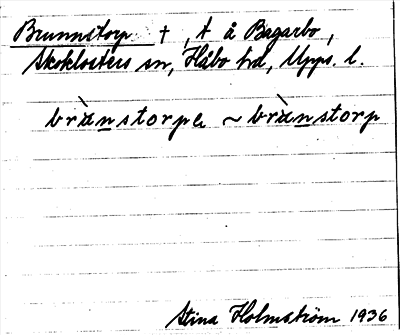 Brunnstorp †, t å Bagarbo,
Skoklosters sn, Håbo hd, Upps. l.
brànstorpa ~ brànstorp
Stina Holmström 1936